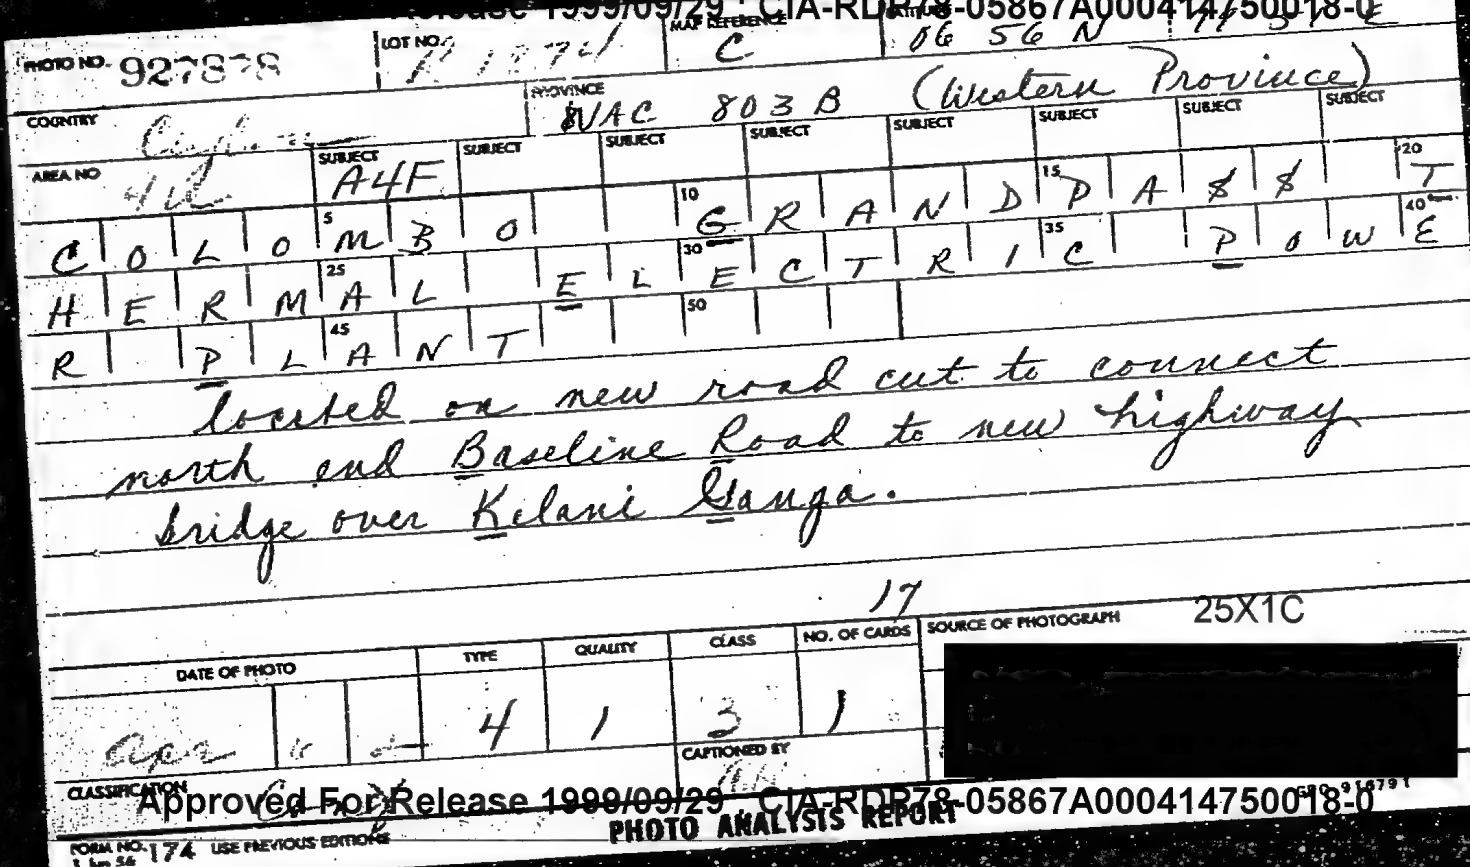 Release 1999/09/29 : CIA-RDP78-05867A000414750018-0
PHOTO NO. 927878 LOT NO. MAP REFERENCE C 06 56 N E
COUNTRY Ceylon PROVINCE WAC 803 B (Western Province)
AREA NO SUBJECT A4F SUBJECT SUBJECT SUBJECT SUBJECT SUBJECT SUBJECT SUBJECT
COLO 5 MBO 10 GRAND 15 PASS 20 T
HERM 25 AL EL 30 ECTRI 35 C POW 40 E
R PL 45 ANT 50
located on new road cut to connect
north end Baseline Road to new highway
bridge over Kelani Ganga.
17
DATE OF PHOTO TYPE QUALITY CLASS NO. OF CARDS SOURCE OF PHOTOGRAPH 25X1C
apr 4 1 3 1
CAPTIONED BY
CLASSIFICATION
Approved For Release 1999/09/29 : CIA-RDP78-05867A000414750018-0
FORM NO. 174 USE PREVIOUS EDITIONS PHOTO ANALYSIS REPORT GPO 916791
1 Jun 56